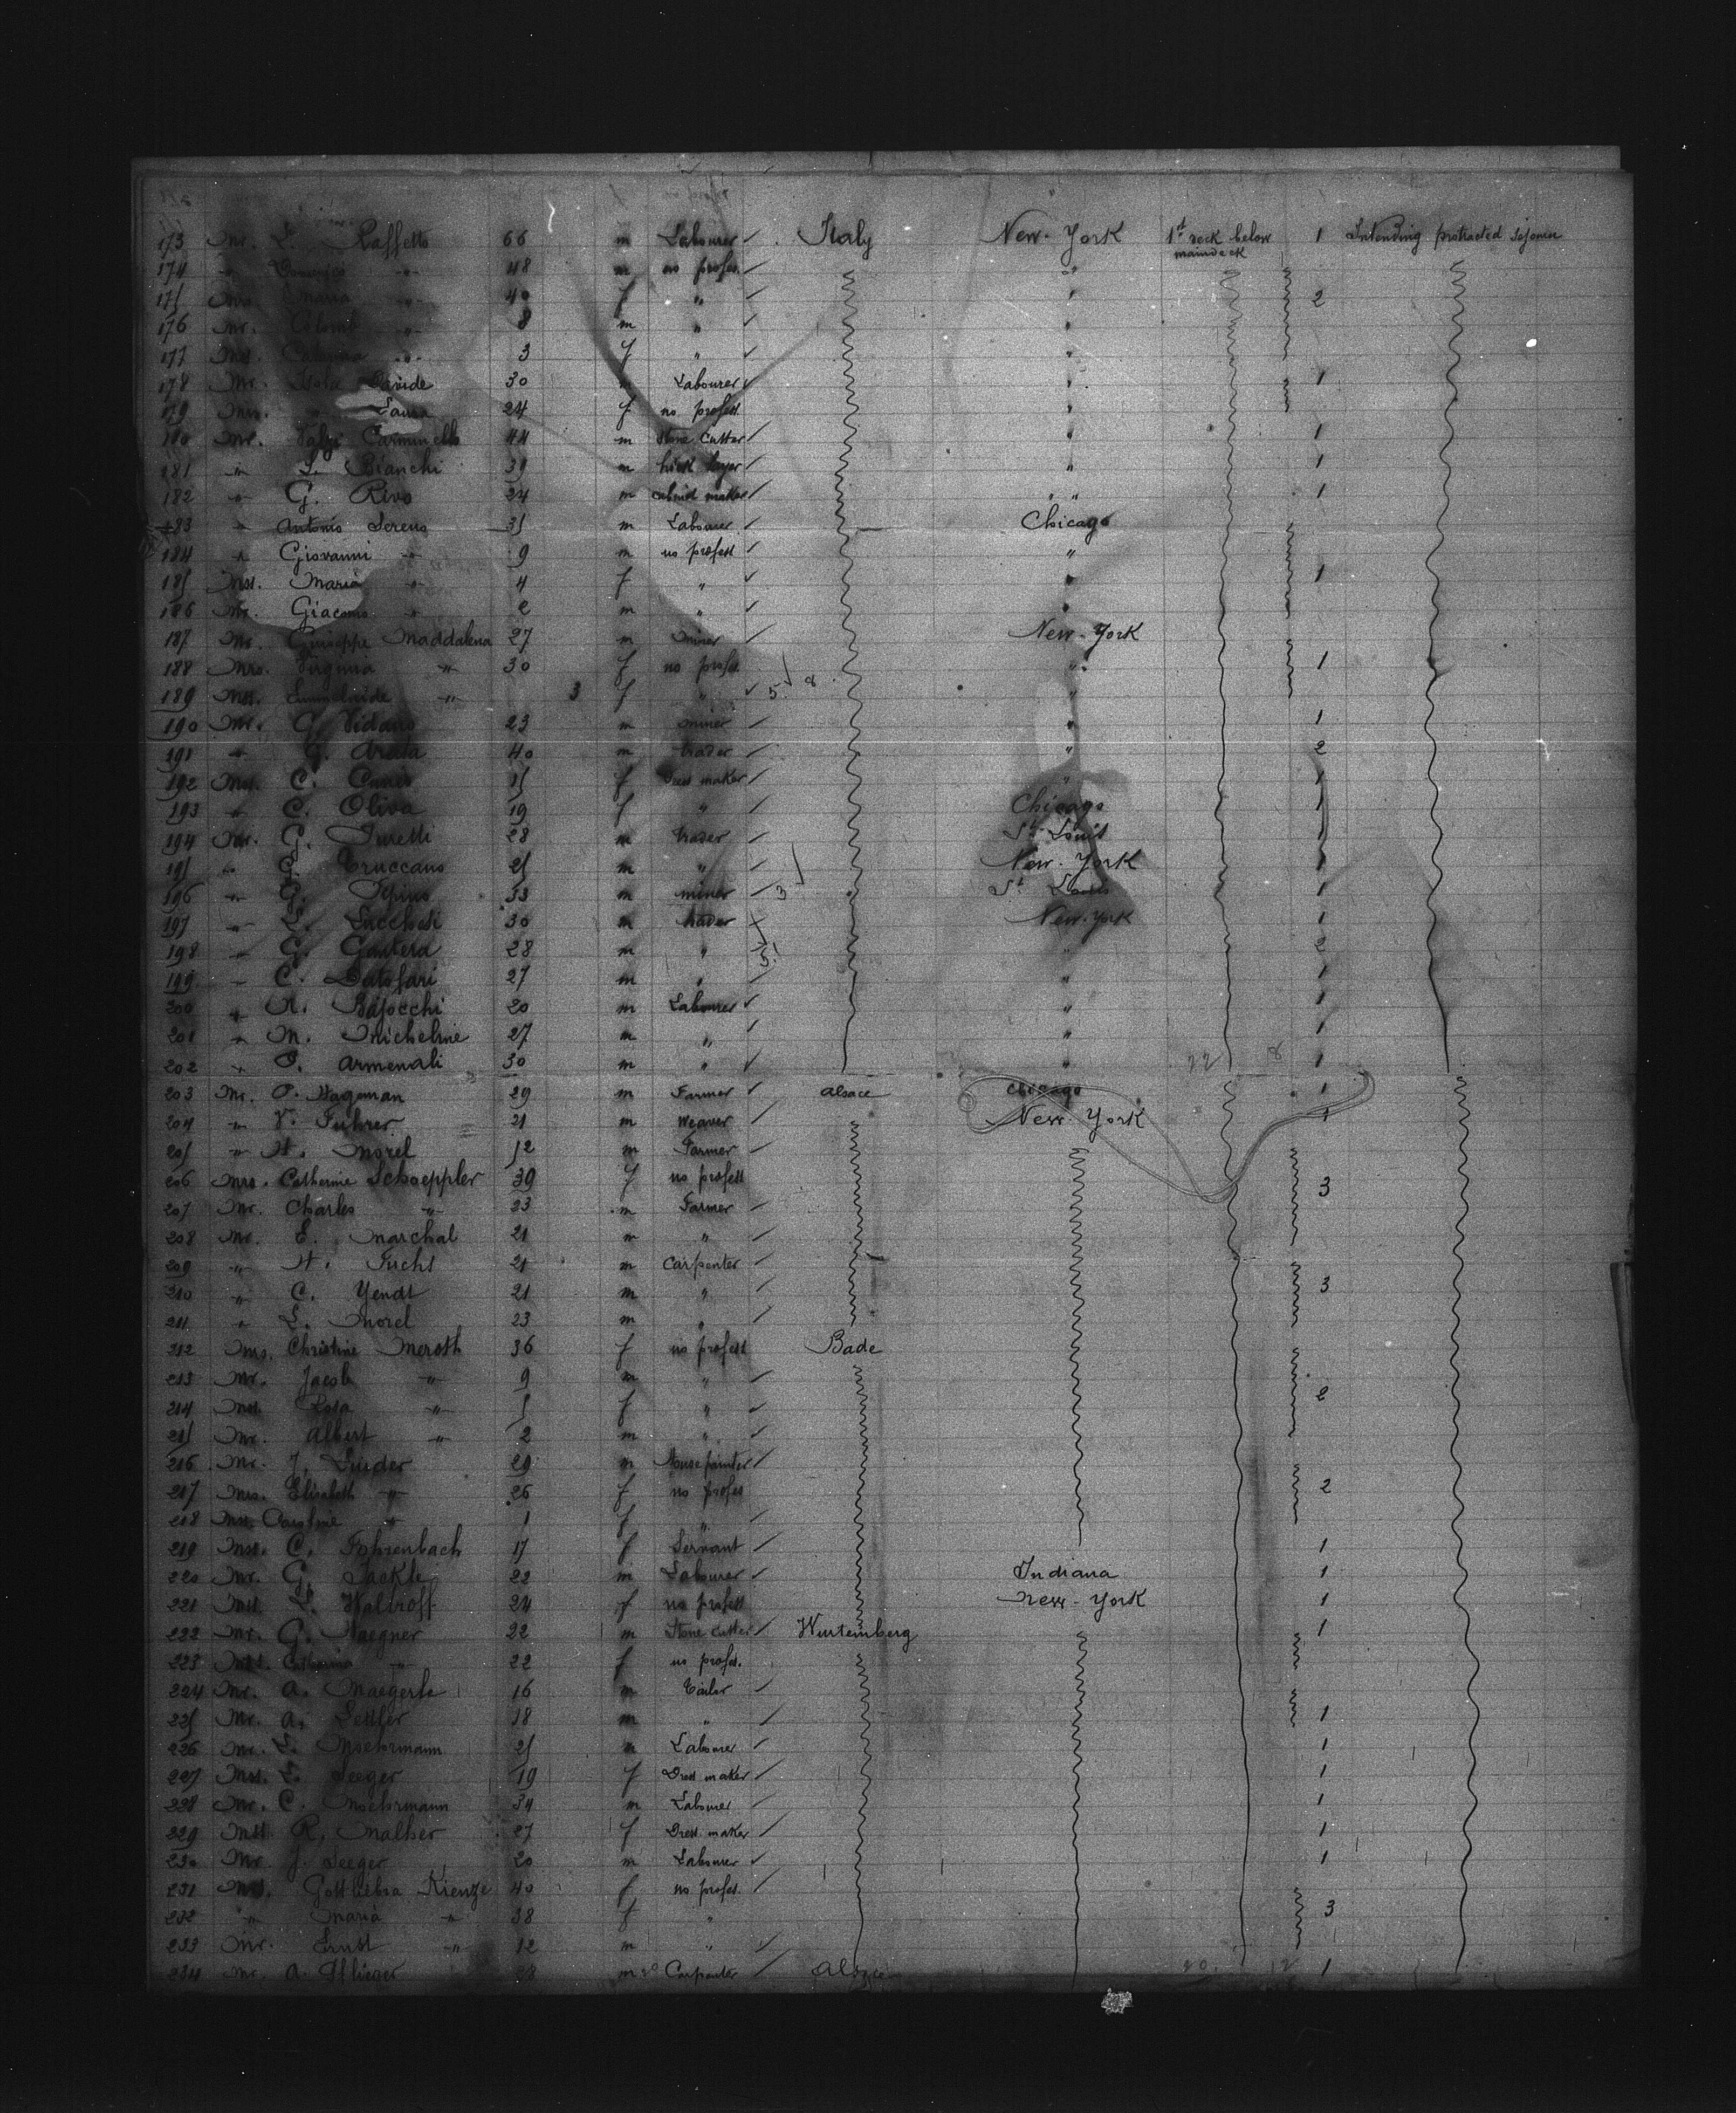 173 Mr. L. Raffetto 66 m Labourer Italy New-York 1st deck below maindeck 1 Intending protracted sojourn
174 " Domenico " 48 m no profes. "
175 Mrs. Maria " 40 f " " 2
176 Mr. Colomb " 8 m " "
177 Mss. Caterina " 3 f " "
178 Mr. Isola Davide 30 m Labourer " 1
179 Mrs. " Laura 24 f no profess. "
180 Mr. Carminello 44 m Stone Cutter " 1
181 " L. Bianchi 39 m brick layer " 1
182 " G. Rivo 24 m cabinet maker " 1
183 " Antonio Sereno 35 m Labourer Chicago
184 " Giovanni " 9 m no profess "
185 Mss. Maria " 4 f " " 1
186 Mr. Giacomo " 2 m " "
187 Mr. Giuseppe Maddalena 27 m miner New-York
188 Mrs. Virginia " 30 f no profes. " 1
189 Mss. " 3 f " 5 8 "
190 Mr. G. Vidano 23 m miner " 1
191 " G. Arata 40 m trader " 2
192 Mss. C. Cuneo 15 f Dress maker " 1
193 " C. Oliva 19 f " Chicago 1
194 Mr. G. 28 m trader St. Louis 1
195 " G. Truccano 25 m " New-York 1
196 " G. 33 m miner 3 St. Louis 1
197 " L. Lucchesi 30 m trader New-York 1
198 " G. Gautera 28 m " 5 " 2
199 " C. 27 m " " 1
200 " A. Bajocchi 20 m Labourer " 1
201 " M. Micheline 27 m " " 1
202 " P. Armenali 30 m " " 22 8 1
203 Mr. P. Hageman 29 m Farmer Alsace Chicago 1
204 " V. Fuhrer 21 m Weaver New-York 1
205 " H. Morel 52 m Farmer
206 Mrs. Catherine Schoeppler 39 f no profess 3
207 Mr. Charles " 23 m Farmer
208 Mr. E. Marchal 21 m "
209 " H. Fuchs 21 m Carpenter
210 " C. Yendt 21 m " 3
211 " L. Morel 23 m "
212 Mrs. Christine Meroth 36 f no profess Bade
213 Mr. Jacob " 9 m "
214 Mss. Rosa " 5 f " 2
215 Mr. Albert " 2 m "
216 Mr. J. 29 m House painter
217 Mrs. Elisabeth " 26 f no profes 2
218 Mss. Caroline " 1 f "
219 Mss. C. Fohrenbach 17 f Servant 1
220 Mr. G. Jackle 22 m Labourer Indiana 1
221 Mss. L. Waldroff 24 f no profess New-York 1
222 Mr. G. Waegner 22 m Stone cutter Wurtemberg 1
223 Mss. Catharina " 22 f no profes.
224 Mr. A. Maegerle 16 m Tailor
225 Mr. A. 18 m " 1
226 Mr. L. Moehrmann 25 m Labourer 1
227 Mss. L. Seeger 19 f Dress maker 1
228 Mr. C. Moehrmann 34 m Labourer 1
229 Mss. R. Malher 27 f Dress maker 1
230 Mr. J. Seeger 20 m Labourer 1
231 Mss. Gottliebia Kienze 40 f no profes.
232 " Maria " 38 f " 3
233 Mr. Ernst " 12 m "
234 Mr. A. Pflieger 28 m Carpenter Alsace 20 12 1